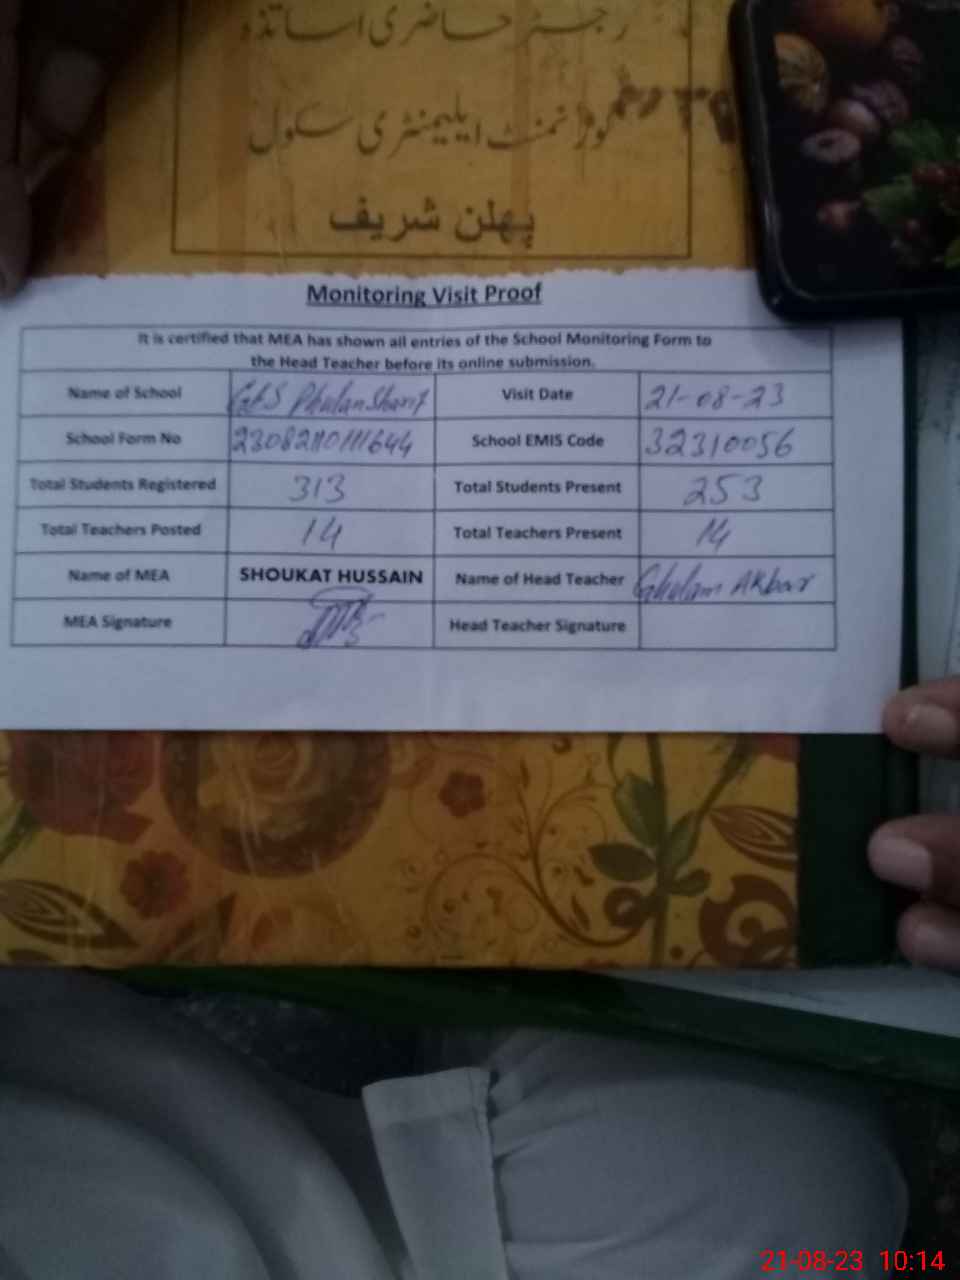 رجسٹر حاضری اساتذہ
گورنمنٹ ایلیمنٹری سکول
پھلن شریف
Monitoring Visit Proof
It is certified that MEA has shown all entries of the School Monitoring Form to
the Head Teacher before its online submission.
Name of School GES Phulan Sharif Visit Date 21-08-23
School Form No School EMIS Code 32310056
Total Students Registered 313 Total Students Present 253
Total Teachers Posted 14 Total Teachers Present 14
Name of MEA SHOUKAT HUSSAIN Name of Head Teacher Ghulam Akbar
MEA Signature Head Teacher Signature
21-08-23 10:14